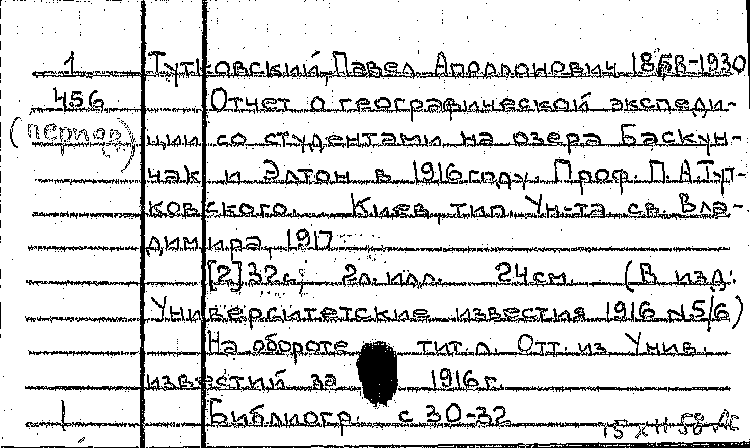 1 Тутковский, Павел Аполлонович 1858-1930
456 Отчет о географической экспеди-
(период) ции со студентами на озера Баскун-
чак и Элтон в 1916 году. Проф. П.А.Тут-
ковского. Киев, тип. Ун-та св. Вла-
димира, 1917
[2] 32 с., 2 л. илл. 24 см. (В изд:
Университетские известия 1916 N 5/6)
На обороте тит. л. Отт. из Унив.
известий за 1916 г.
1 Библиогр. с 30-32